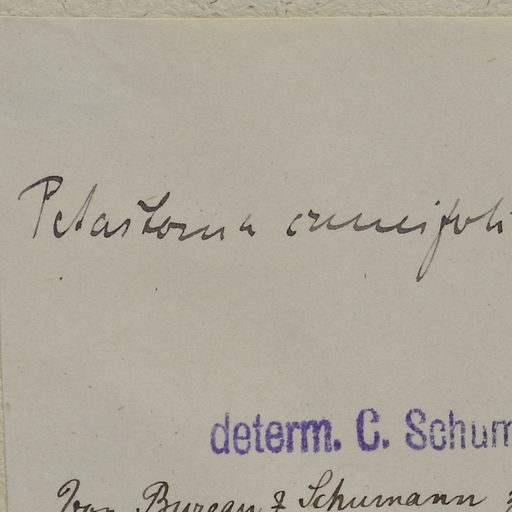 Petastoma cuneifoli
determ. C. Schum
Von Bureau & Schumann